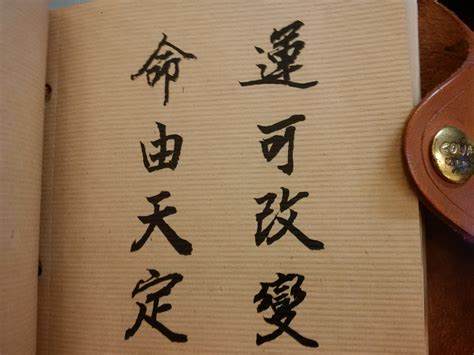 命由天定
運可改變